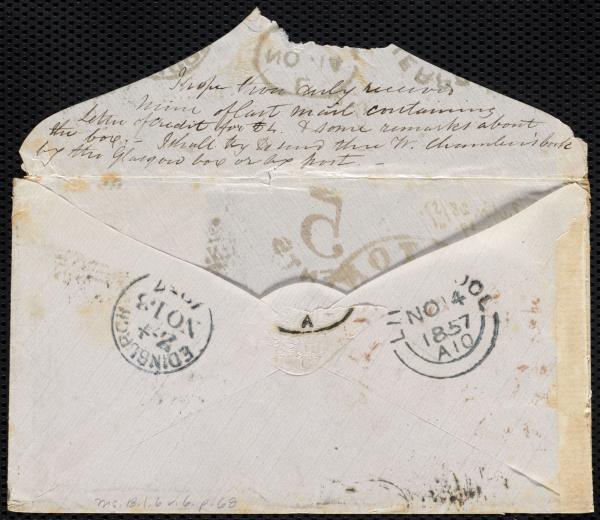 I hope thou duly received
mine of last mail containing
letter of credit for £4. & some remarks about
the box; – I shall try to send thee W. Chambers's book
by the Glasgow box or by post –
5
EDINBURGH
NO 13
1857
LIVERPOOL
NO 14
1857
A 10
A
Ms. B.1.6 v.6. p.68